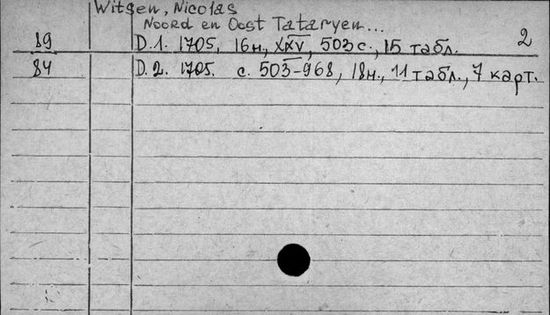 Witsen, Nicolas
Noord en Oost Tataryen...
89 D.1. 1705, 16н., XXV, 503 с., 15 табл. 2
84 D.2. 1705. с. 503-968, 18н., 11 табл., 7 карт.